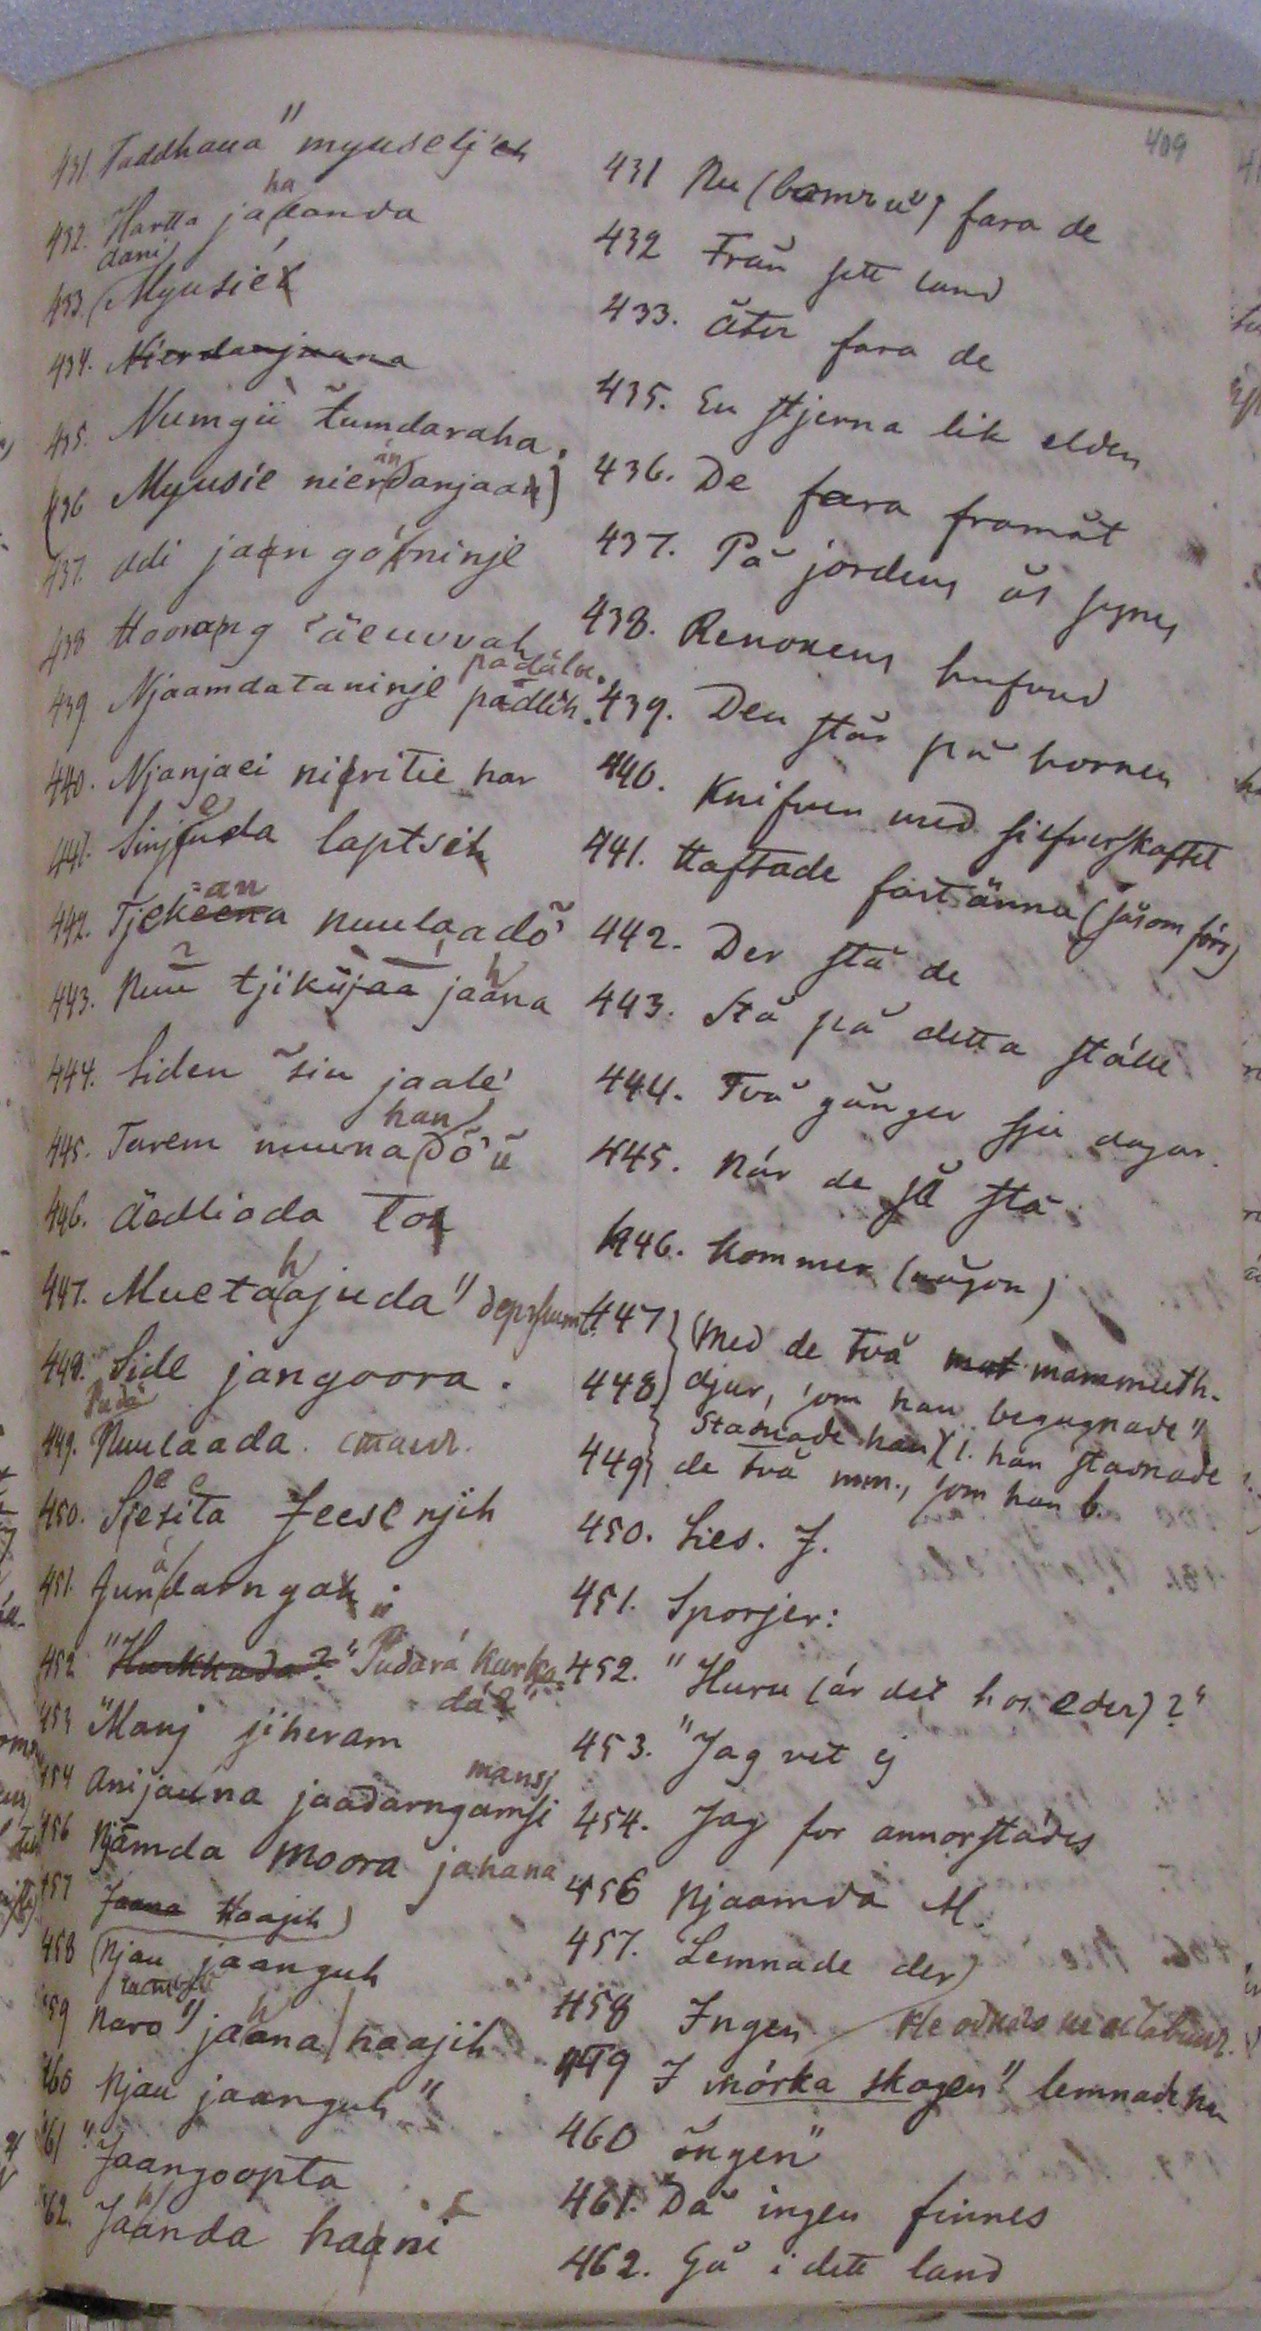 409
431. Taddhaua" myuseljeh
ha
432. Hartta jadanda
dani
433. Myusiéh
434. Nierdanjaana
435. Numgü tumdaraha.
än
(436 Myusie nierdanjaah)
437. Odi jaan góhninje
438 Hoorang äeuvvah
padälu.
439 Njaamdataninje padlih.
440. Njanjaei niritie har
e
441. Sinjuda laptseh
=an
442. Tjekeena nuulaadõ
h
443. Nuu tjikujaa jaana
444. Siden siu jaale'
han
445. Tarem nuunadõ'ü
446. äedliada toh
h
447. Muetaajuda"
448. Side jangoora.
Puda
449. Nuulaada.
450. Siesita Jeesenjih
451. Jundarngah:
452 "Hurkkada?" Pudará kurka=
dá?"
453 "Manj jiheram
mansj
454 Anijauna jaadarngamsi
456 Njamda Moora jahana
457 Jaana Haajih)
458 (Njau jaanguh
459 Naro" jaana haajih
h
460 Njau jaanguh"
461 "Jaangoopta
h
462. Jaanda haani
431 Nu (bomru) fara de
432 Från sitt land
433. åter fara de
435. En stjerna lik elden
436. De fara framåt
437. På jordens ås synes
438. Renoxens hufvud
439. Den står på hornen
440. Knifven med silfverskaftet
441. Haftade fast änna (såsom förr)
442. Der stå de
443. Stå på detta ställe
444. Två gånger sju dagar.
445. När de så stå
446. Kommer (någon)
447 (Med de två mammuth-
448 djur, som han begagnade"
stannade han) (l. han stannade
449 de två mm., som han b.
450. Sies. J.
451. Sporjer:
452. "Huru (är det hos eder)?"
453. "Jag vet ej
454. Jag for annorstädes
456 Njaamda M.
457. Lemnade der)
458 Ingen
459 I mörka skogen" lemnade han
460 ingen"
461. Då ingen finnes
462. Gå i dett land